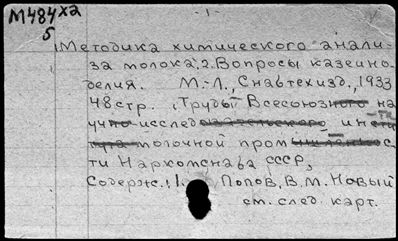 М484х2
-1-
5
Методика химического анали-
за молока; 2. Вопросы казеино-
делия. М.-Л., Снабтехизд., 1933
48 стр. (Труды Всесоюзного на
учно-исследовательского ин-сти
тута молочной промышленнос
ти Наркомснаба СССР,
Содерж.: 1. Попов, В.М. Новый
см. след. карт.